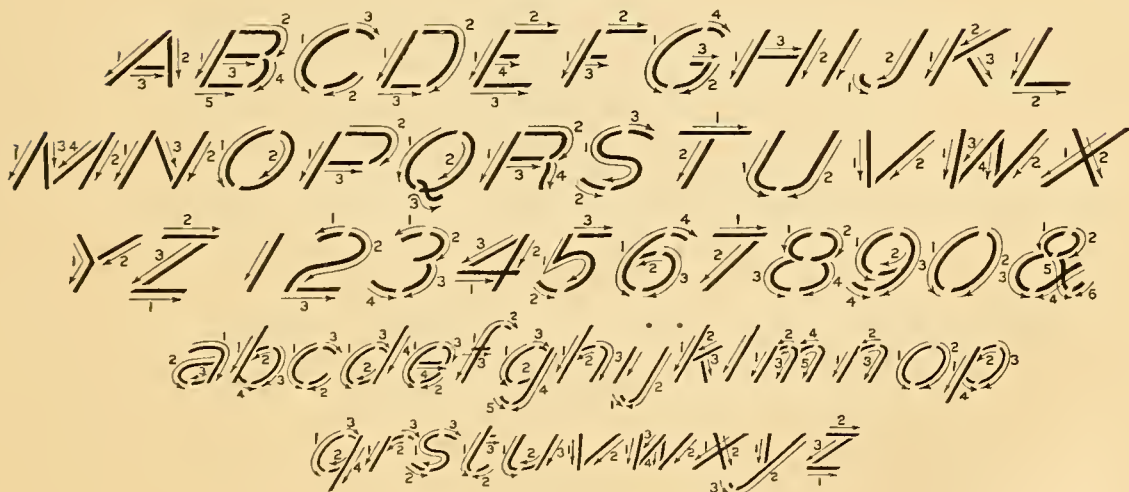 ABCDEFGHIJKL
MNOPQRSTUVWX
YZ 1234567890&
abcdefghijklmnop
qrstuvwxyz